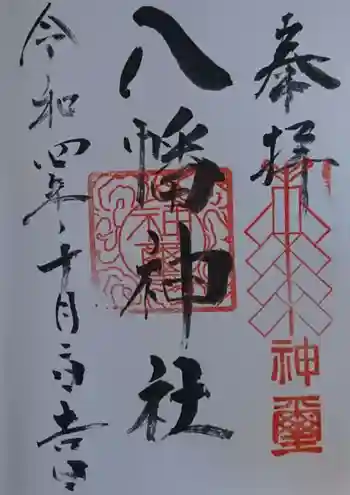 奉拝
八幡神社
令和四年十月吉日
神璽